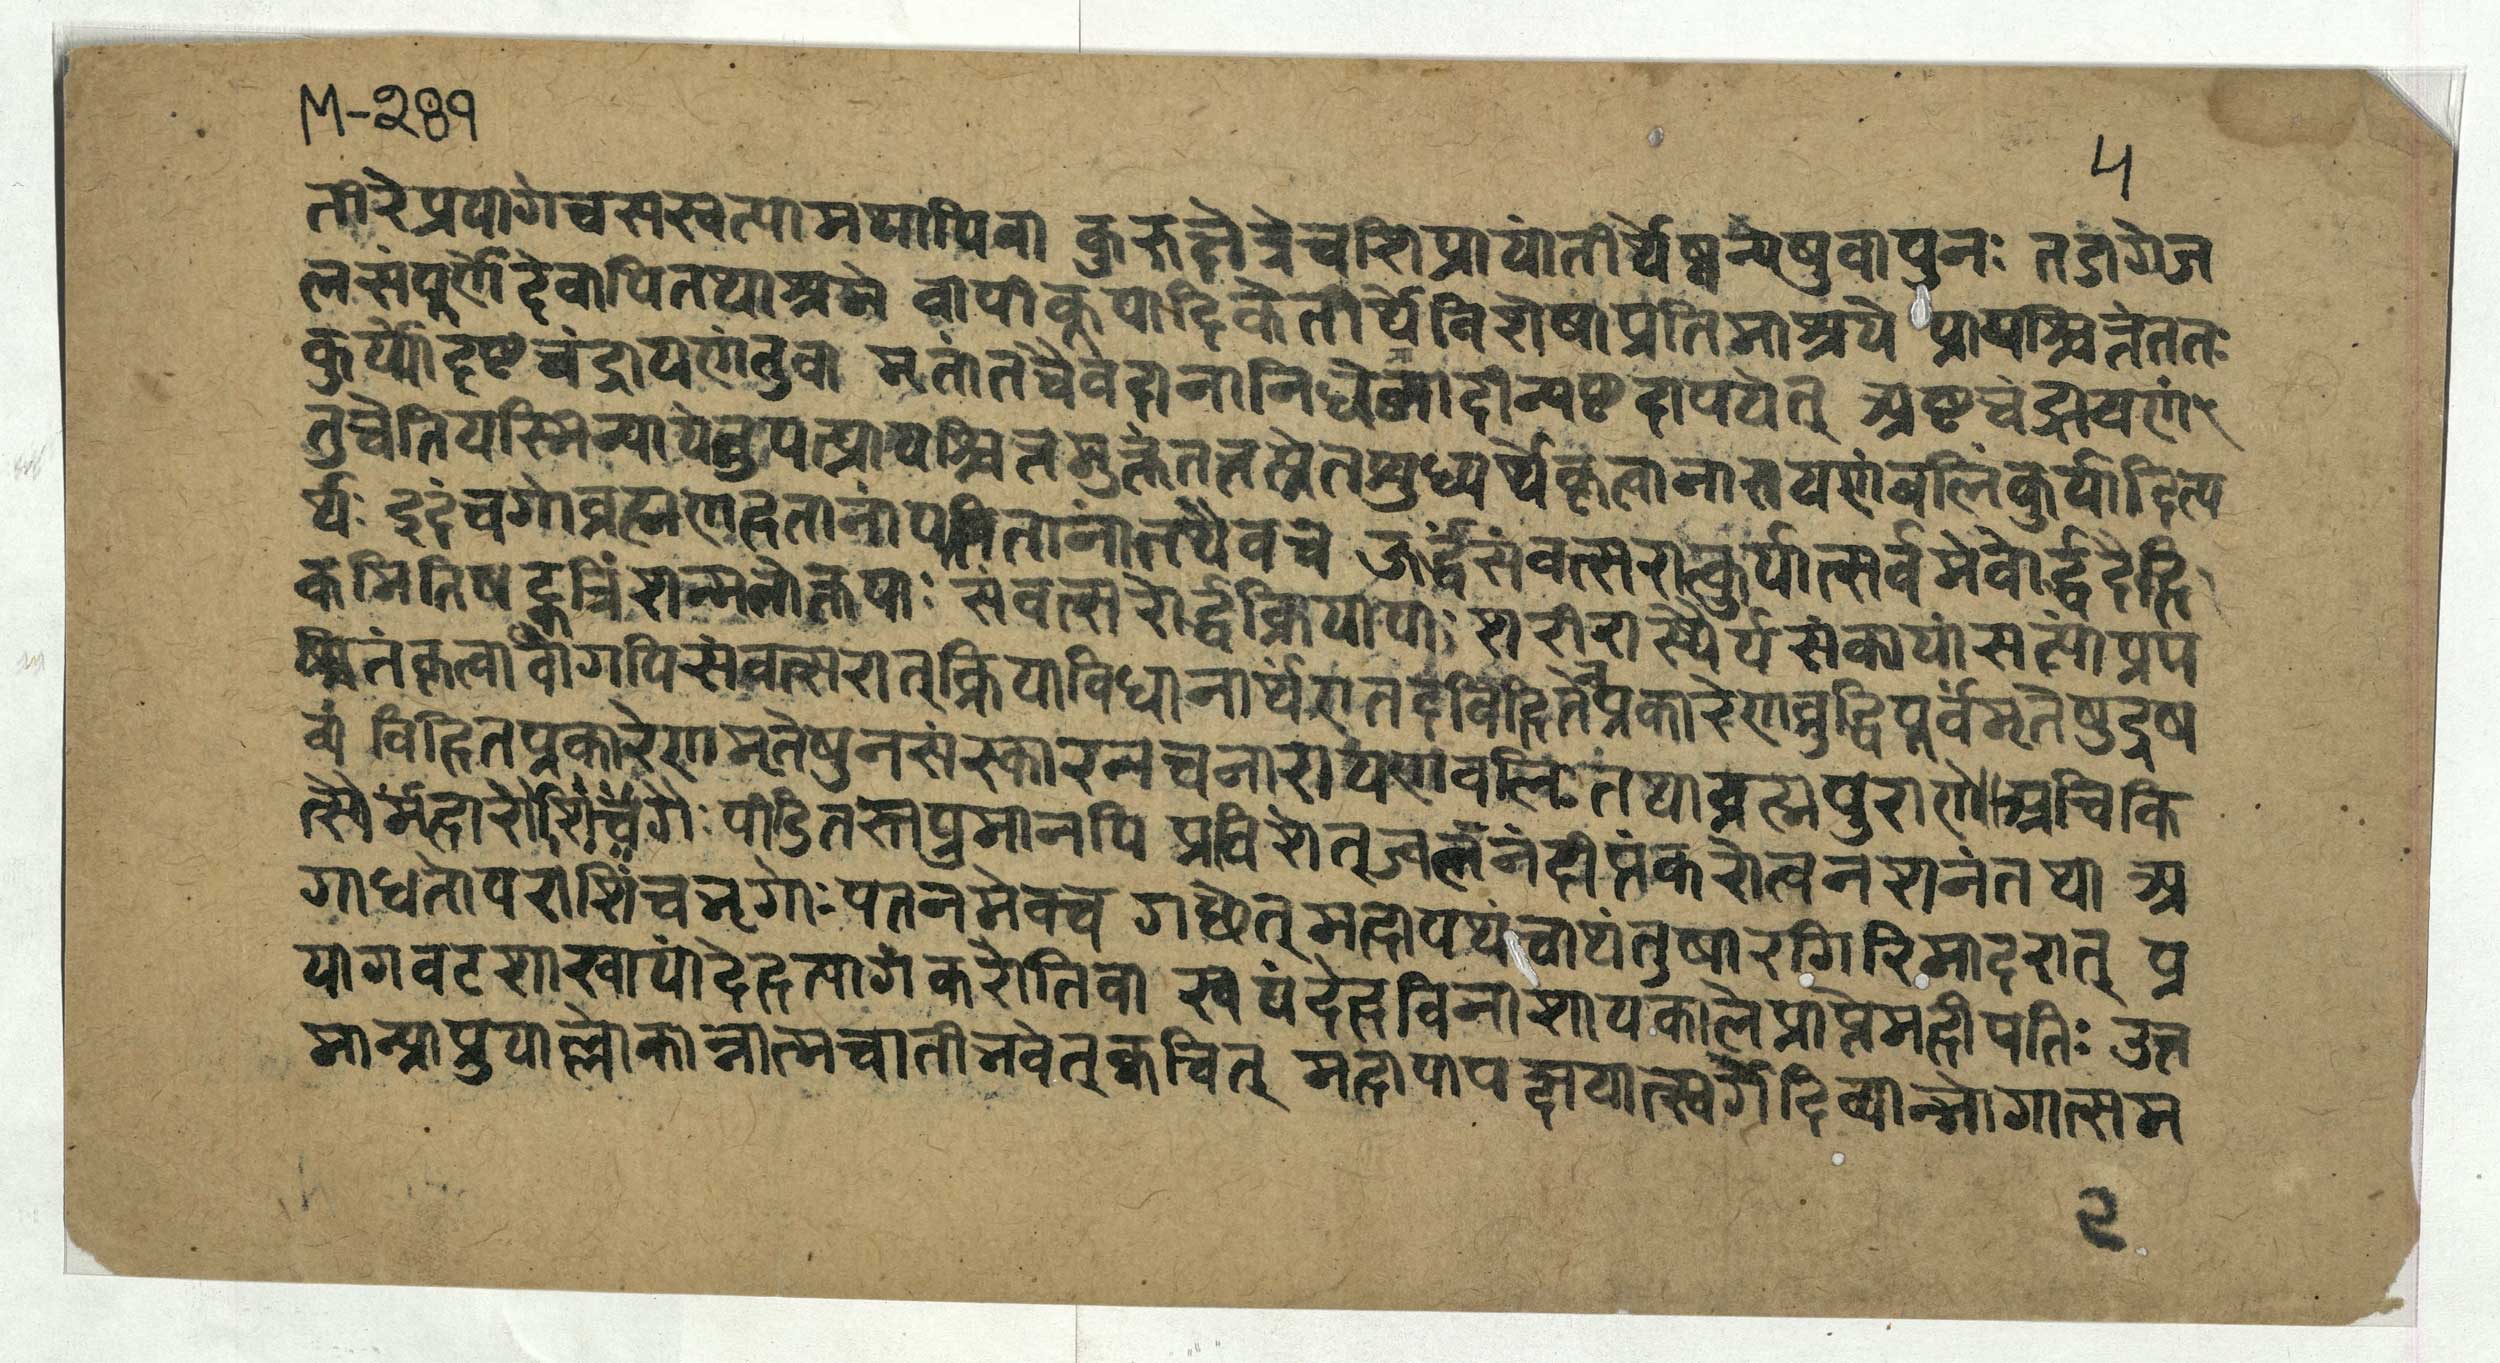 M-२४१
५
तीरेप्रयागेचसरस्वत्यामथापिवा कुरुक्षेत्रेचशिप्रायांतीर्थेष्वन्येषुवापुनः तडागेज
लसंपूर्णेह्रदेवापितथाश्रमे वापीकूपादिकेतीर्थेविशेषाप्रतिमाश्रये प्रायश्चित्तंततः
कुर्य्यादष्टचंद्रायणंतुवा मृतांतचैवदानानिधेन्वादीन्यष्टदापयेत् अष्टचंद्रायणं
तुच्चेतियस्मिन्यापेतुयत्प्रायश्चित्तमुक्तंतत्तस्येतशुध्यर्थंकृत्वानारायणंबलिंकुर्यादित्य
र्थः इदंचगोब्रह्मणहतानांपतितानांतथैवच ऊर्द्ध्वंसंवत्सरात्कुर्यात्सर्वमेवोर्द्ध्वदैहि
कमितिषट्त्रिंशन्मतोक्तयाः संवत्सरोर्द्ध्वक्रियायाः शरीरास्थैर्यसंकायांसत्यांप्रप
ञ्चितंकृत्वार्वागपिसंवत्सरात्क्रियाविधानार्थंएतदविहितेनप्रकारेणबुद्धिपूर्वमृतेषुद्रष्ट
व्यं विहितप्रकारेणमृतेषुनसंस्कारनचनारायणबलिः तथाब्रह्मपुराणे॥अचिकि
त्सैर्महारोगैः पीडितस्तुपुमानपि प्रविशेत्ज्वलनंदीप्तंकरोत्वनशनंतथा अ
गाधतोयराशिंचभृगोःपतनमेवच गच्छेत्महापथंवाथंतुषारगिरिमादरात् प्र
यागवटशाखायांदेहत्यागंकरोतिवा स्वयंदेहविनाशायकालेप्राप्तेमहीपतिः उत्त
मान्प्राप्नुयाल्लोकान्नात्मघातीभवेत्क्वचित् महापापक्षयात्स्वर्गेदिव्यान्भोगात्सम
२